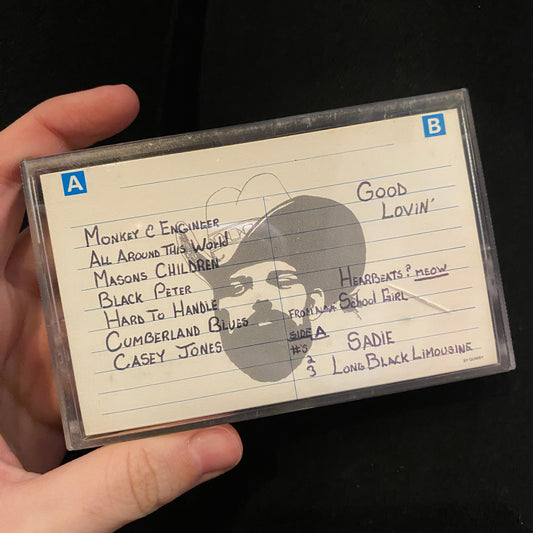 A
B
MONKEY C ENGINEER
ALL AROUND THIS WORLD
MASONS CHILDREN
BLACK PETER
HARD TO HANDLE
CUMBERLAND BLUES
CASEY JONES
GOOD
LOVIN'
HEARBEATS? MEOW
SCHOOL GIRL
SIDE A
#'S
2 SADIE
3 LONG BLACK LIMOUSINE